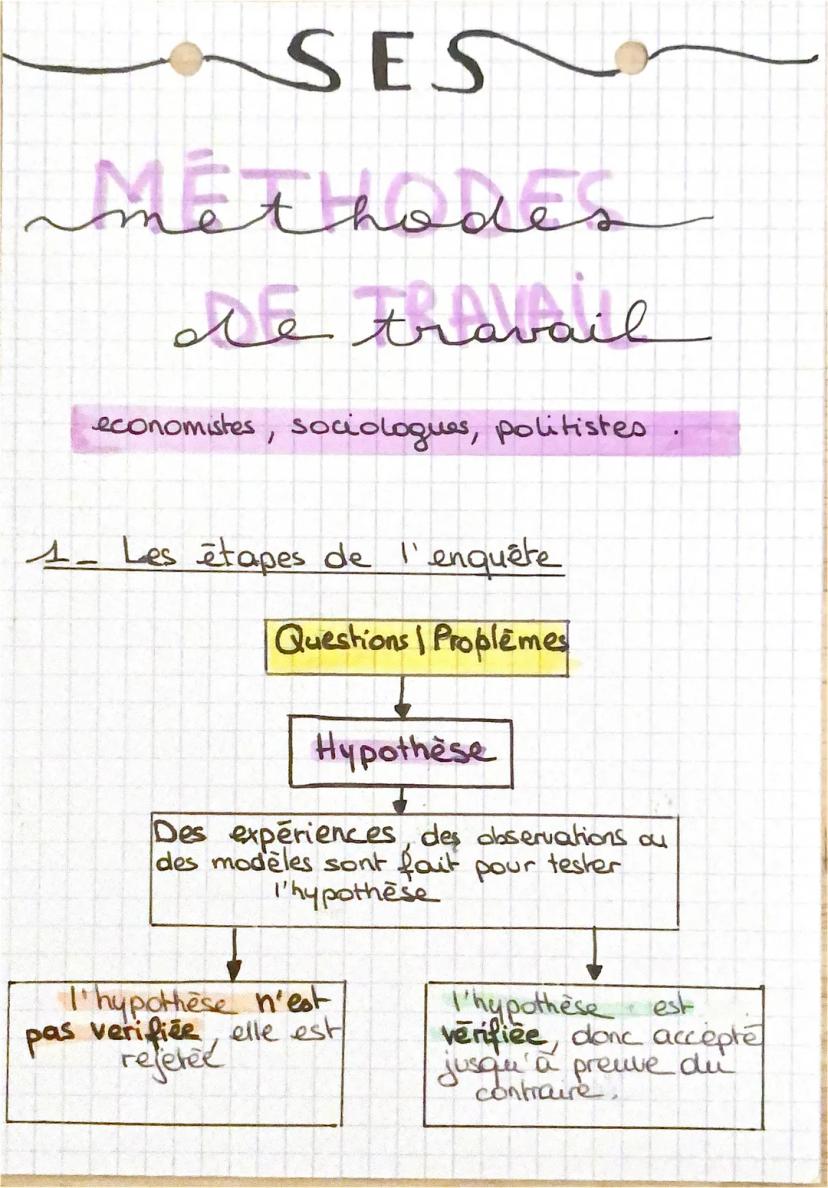 SES
MÉTHODES
methodes
DE TRAVAIL
de travail
economistes, sociologues, politistes.
1- Les étapes de l'enquête
Questions | Proplèmes
Hypothèse
Des expériences, des observations ou
des modèles sont fait pour tester
l'hypothèse
l'hypothèse n'est
pas verifiée, elle est
rejetée
l'hypothèse est
vérifiée, donc accepté
jusqu'à preuve du
contraire.